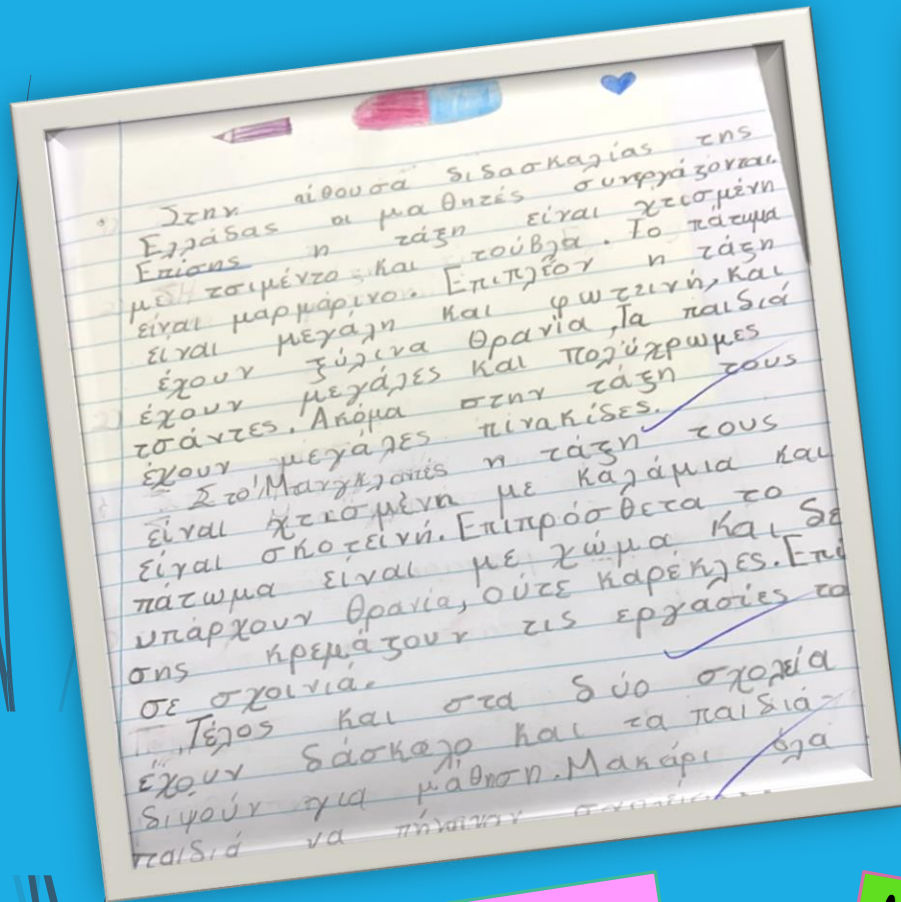 Στην αίθουσα διδασκαλίας της
Ελλάδας οι μαθητές συνεργάζονται.
Επίσης η τάξη είναι χτισμένη
με τσιμέντο και τούβλα. Το πάτωμα
είναι μαρμάρινο. Επιπλέον η τάξη
είναι μεγάλη και φωτεινή, και
έχουν ξύλινα θρανία. Τα παιδιά
έχουν μεγάλες και πολύχρωμες
τσάντες. Ακόμα στην τάξη τους
έχουν μεγάλες πινακίδες.
Στο Μπαγκλαντές η τάξη τους
είναι χτισμένη με καλάμια και
είναι σκοτεινή. Επιπρόσθετα το
πάτωμα είναι με χώμα και δε
υπάρχουν θρανία, ούτε καρέκλες. Επί
σης κρεμάζουν τις εργασίες το
σε σχοινιά.
Τέλος και στα δύο σχολεία
έχουν δάσκαλο και τα παιδιά
διψούν για μάθηση. Μακάρι όλα
παιδιά να πήγαιναν